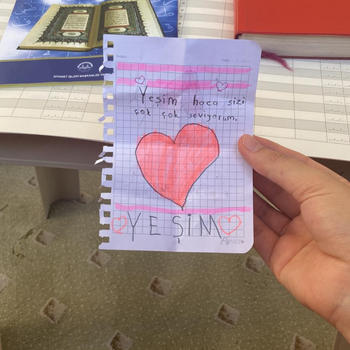 Yeşim hoca sizi
çok çok seviyorum.
YEŞİM